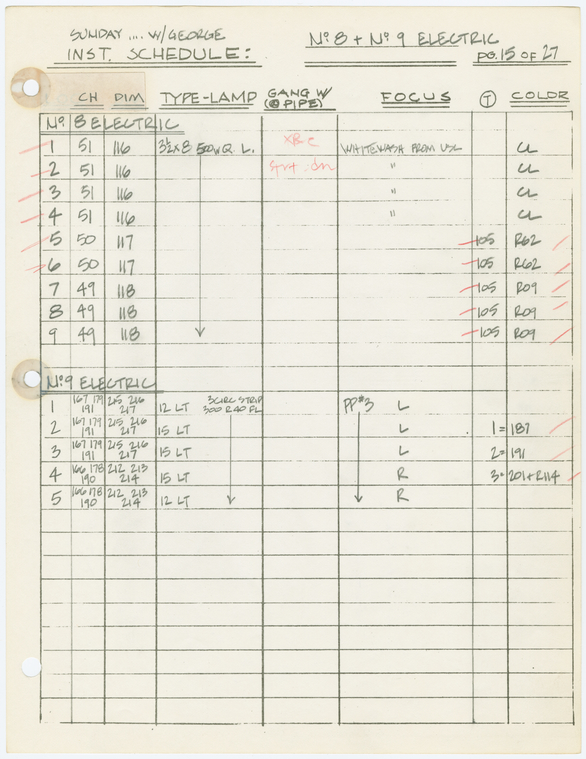 SUNDAY .... W/GEORGE
INST. SCHEDULE:
Nº 8 + Nº 9 ELECTRIC
PG. 15 OF 27
CH DIM TYPE-LAMP GANG W/ (@ PIPE) FOCUS T COLOR
Nº 8 ELECTRIC
1 51 116 3½x8 500W Q. L. WHITEWASH FROM USL CL
2 51 116 " CL
3 51 116 " CL
4 51 116 " CL
5 50 117 105 R62
6 50 117 105 R62
7 49 118 105 R09
8 49 118 105 R09
9 49 118 105 R09
Nº 9 ELECTRIC
1 167 179 191 215 216 217 12 LT 3 CIRC STRIP 300 R40 FL PP#3 L
2 167 179 191 215 216 217 15 LT L 1 = 187
3 167 179 191 215 216 217 15 LT L 2 = 191
4 166 178 190 212 213 214 15 LT R 3 = 201 + R114
5 166 178 190 212 213 214 12 LT R